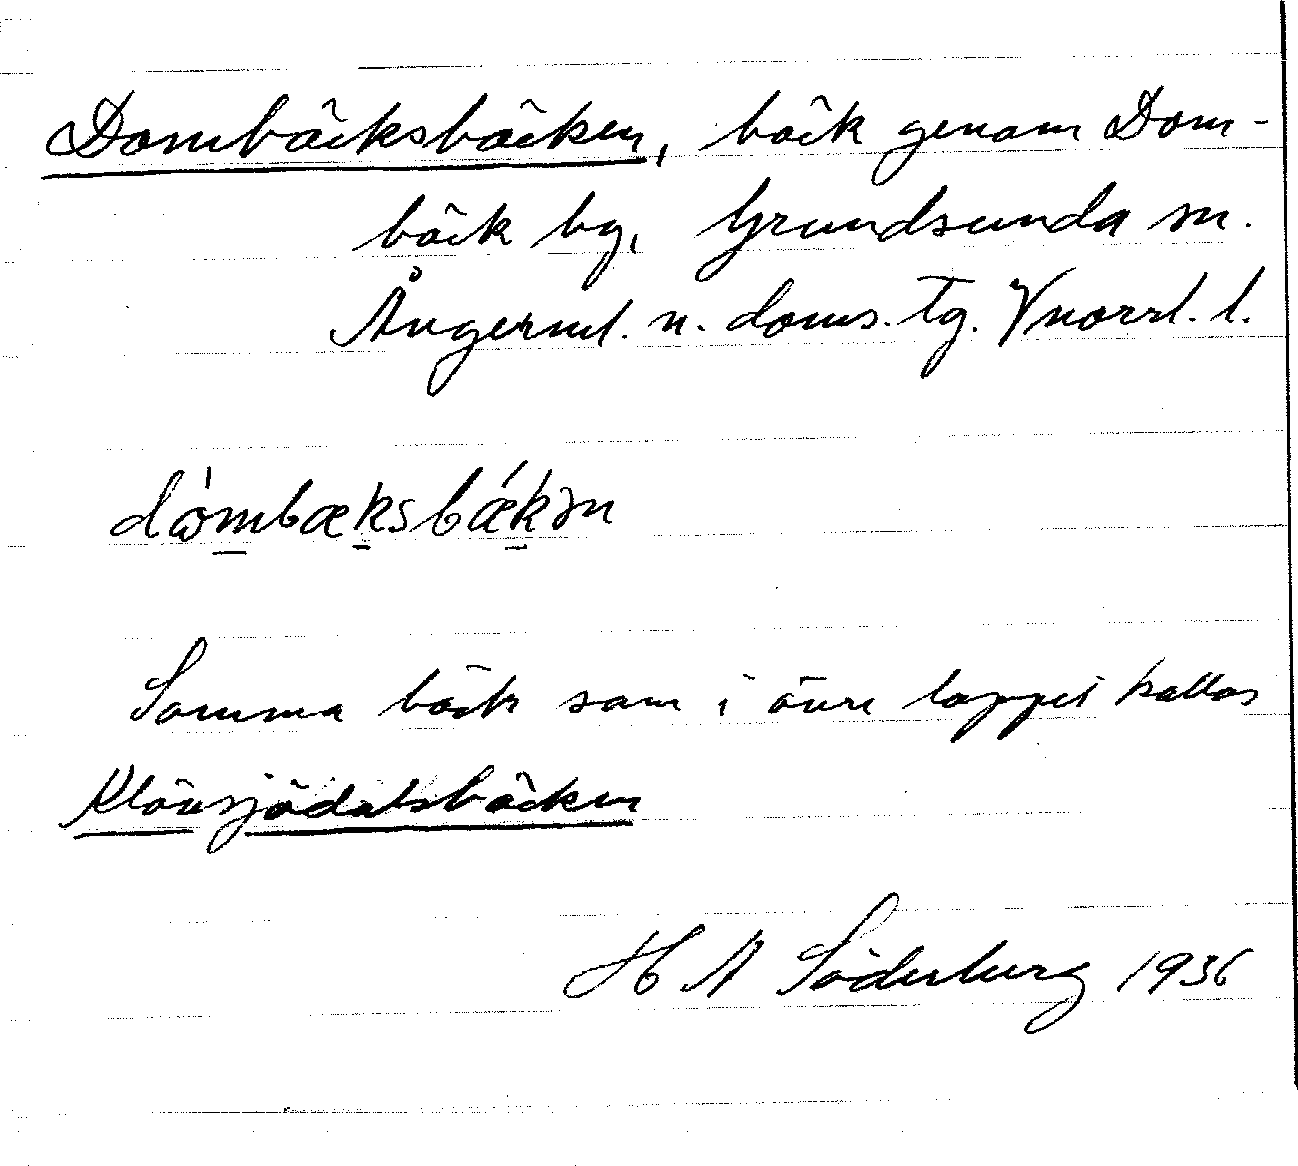 Dombäcksbäcken, bäck genom Dom-
bäck by, Grundsunda sn.
Ångerml. n. doms. tg. Vnorrl. l.
dὼmbæksbǽkən
Samma bäck som i övre loppet kallas
Klövsjödalsbäcken
H A Söderberg 1936